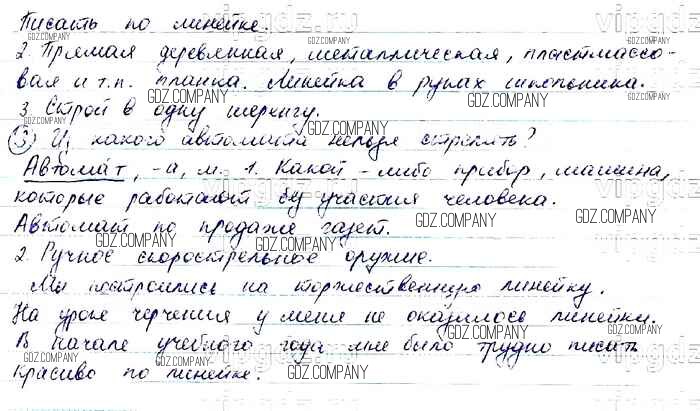 Писать по линейке.
2. Прямая деревянная, металлическая, пластмассо-
вая и т.п. планка. Линейка в руках школьника.
3. Строй в одну шеренгу.
③ Из какого автомата нельзя стрелять?
Автомат, -а, м. 1. Какой-либо прибор, машина,
которые работают без участия человека.
Автомат по продаже газет.
2. Ручное скорострельное оружие.
Мы построились на торжественную линейку.
На уроке черчения у меня не оказалось линейки.
В начале учебного года мне было трудно писать
красиво по линейке.
GDZ.COMPANY
vipgdz.ru